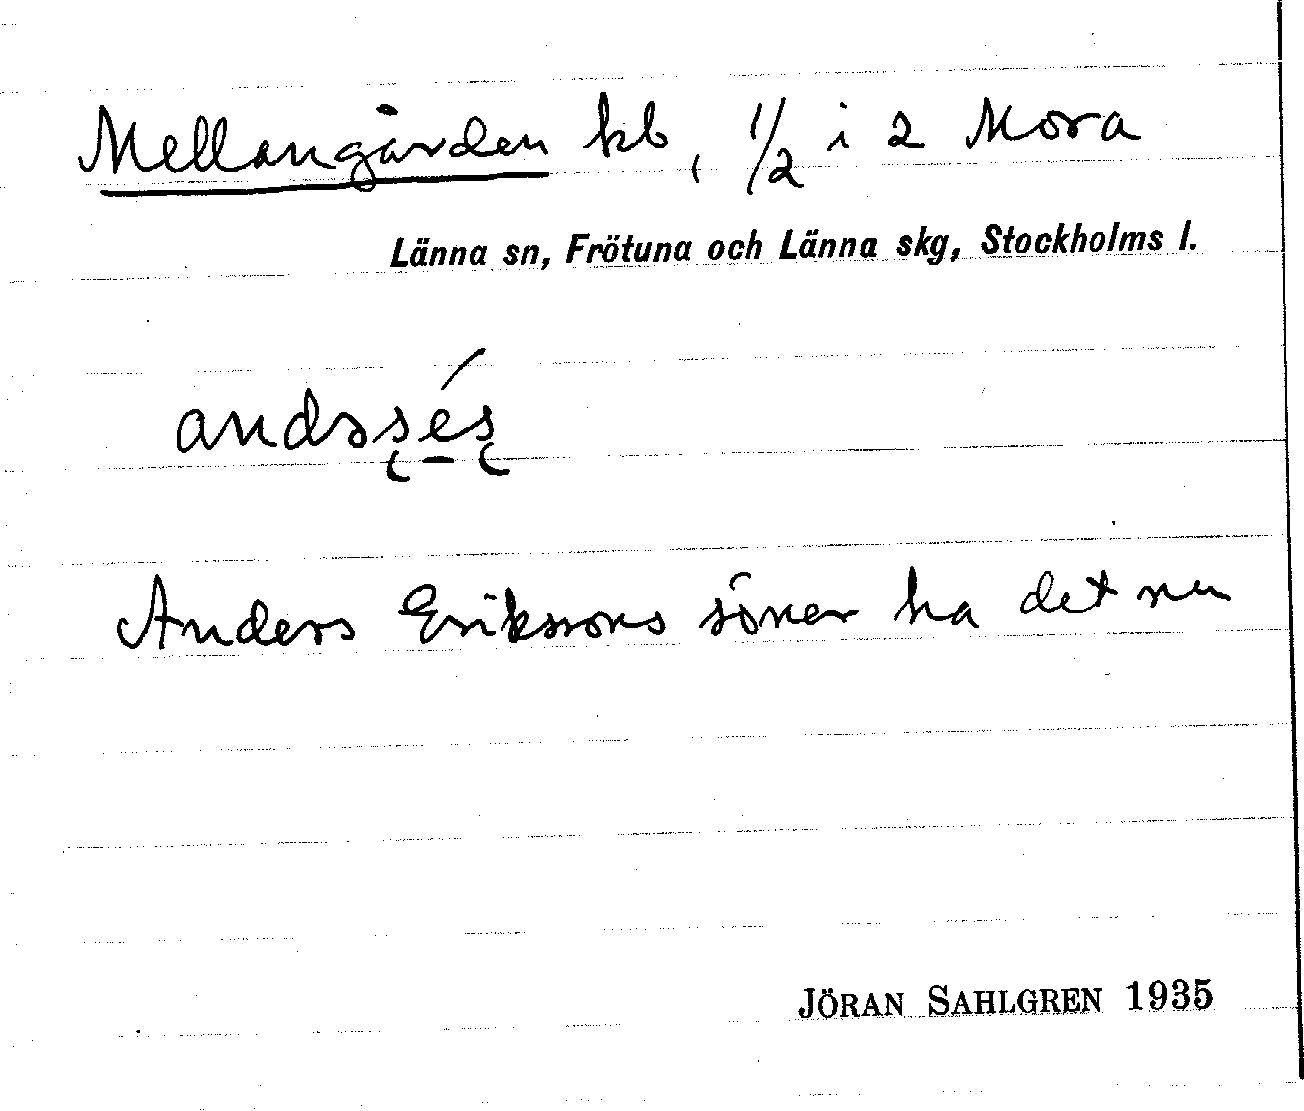 Mellangården kb, 1/2 i 2 Mora
Länna sn, Frötuna och Länna skg, Stockholms l.
Anders Eriksons söner ha det nu
JÖRAN SAHLGREN 1935